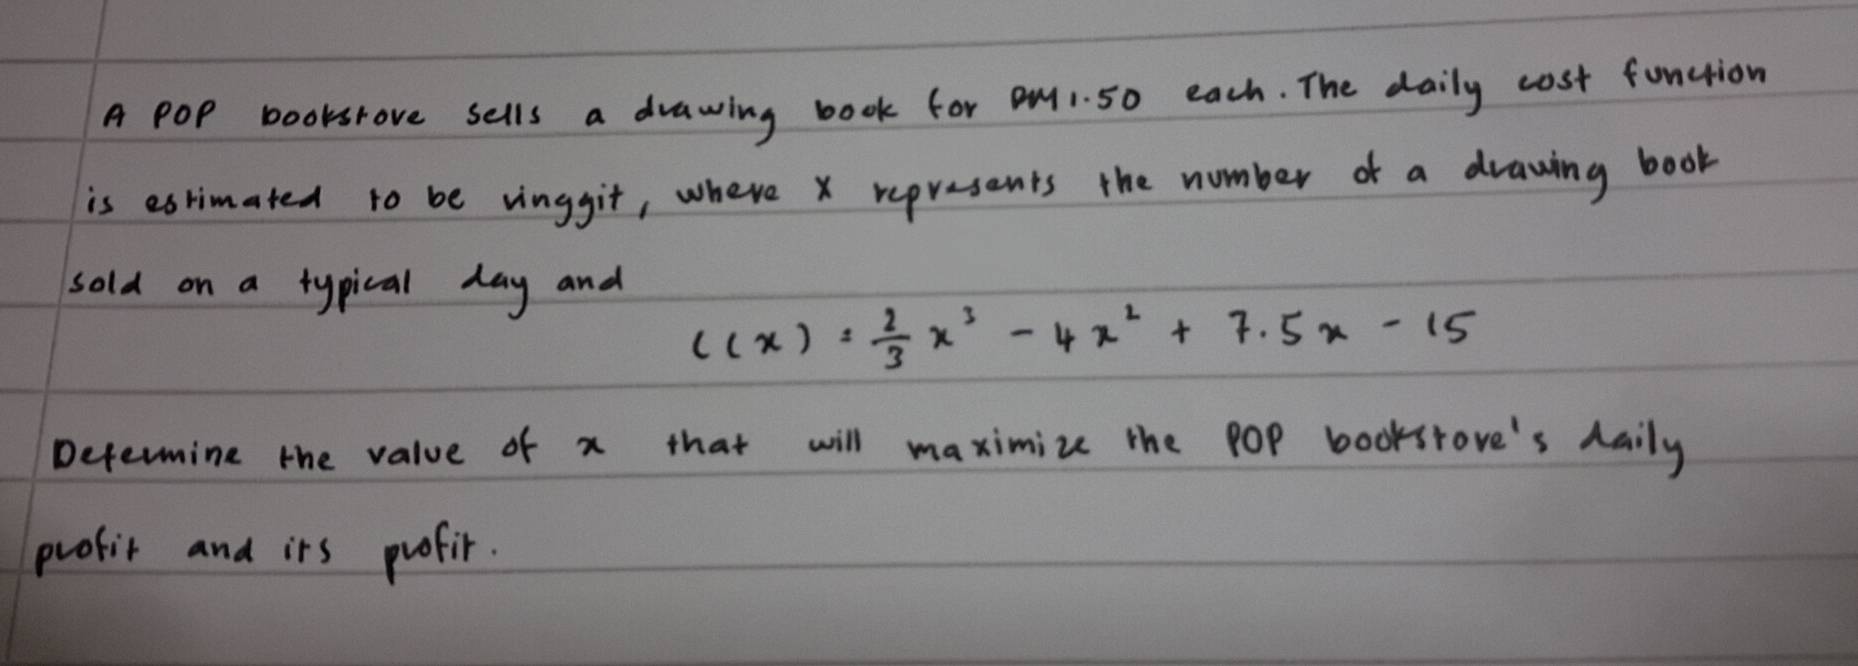 A POP bookstore sells a drawing book for RM1.50 each. The daily cost function
is estimated to be ringgit, where x represents the number of a drawing book
sold on a typical day and
C(x) = 2/3 x³ - 4x² + 7.5x - 15
Determine the value of x that will maximize the POP bookstore's daily
profit and its profit.